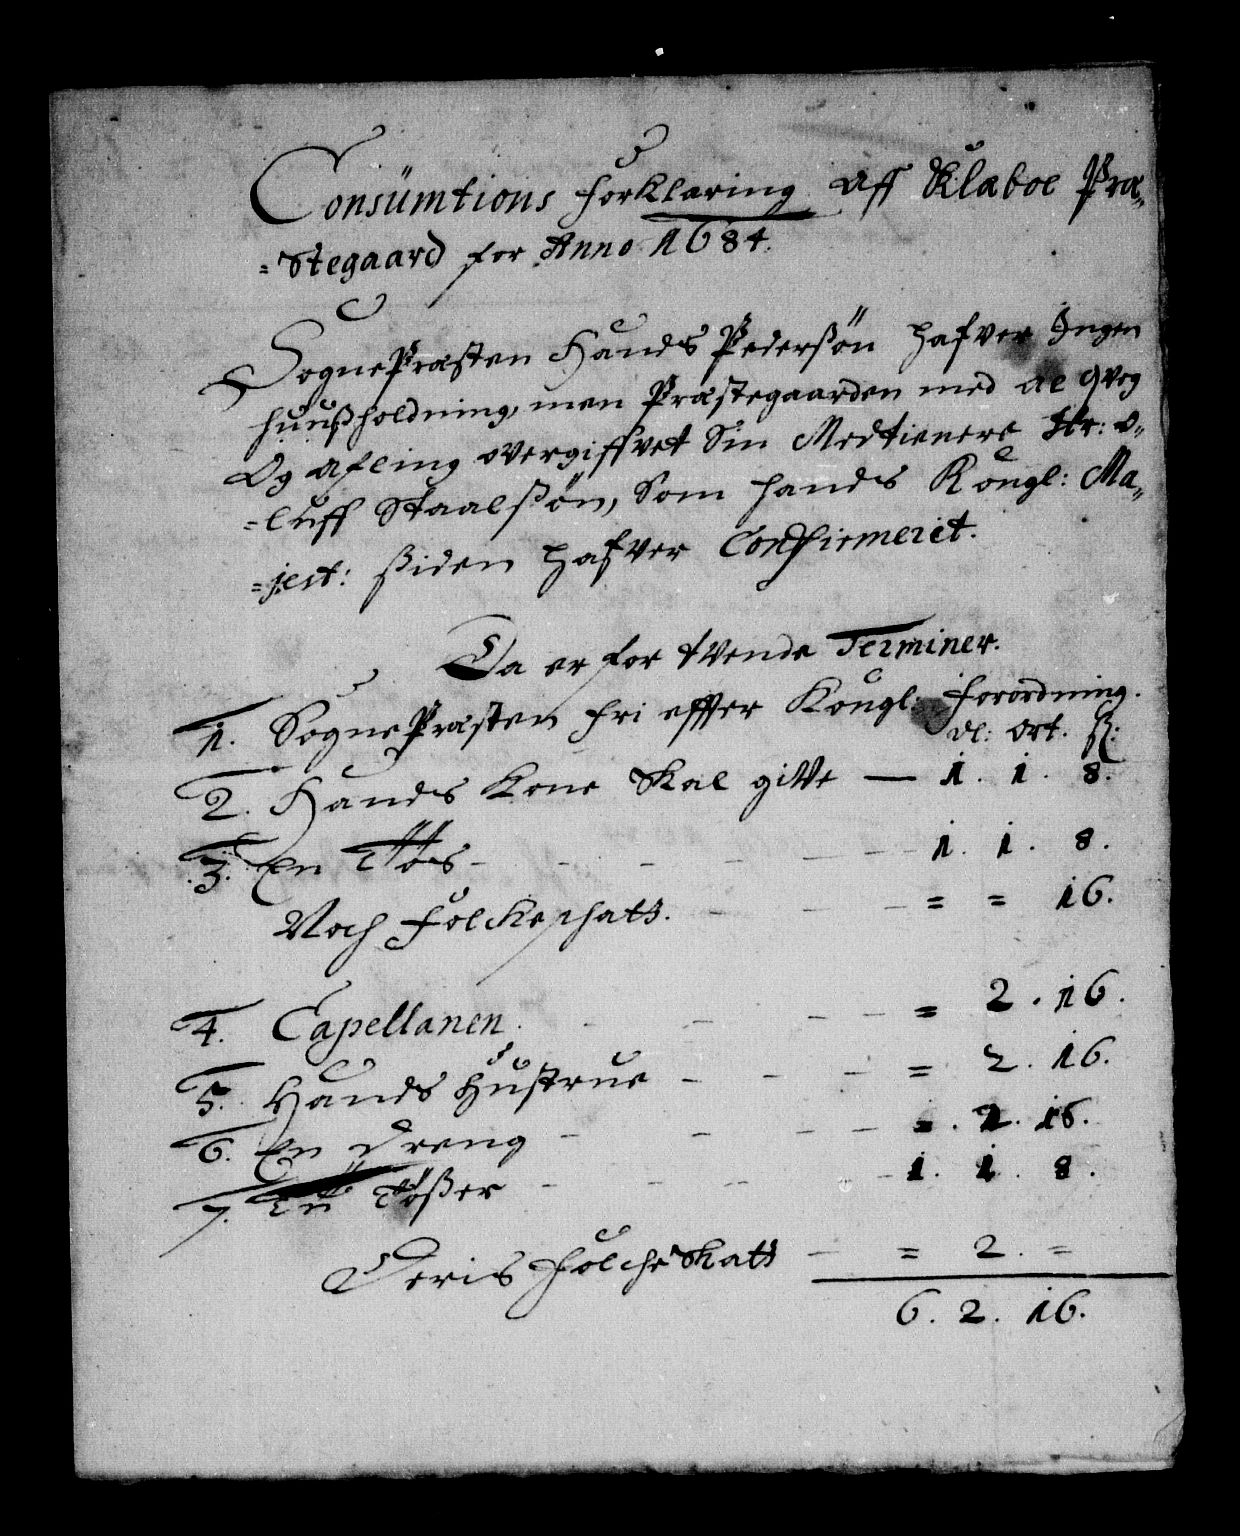 Consümtions forklaring aff Klaboe Præ„
=Stegaard for Anno 1684.
SognePræsten Hands Pederßön hafver Ingen
huußholdning, men Præstegaarden med al Qveg
Og afling overgiffvet Sin Medtienere Hr: O„
=luff Staalßön, Som hands Kongl: Ma„
=jest: ßiden hafver Confirmeret.
Da er for tvende Terminer.
1. SognePræsten fri effter Kongl: forordning.
dl: ort. ß:
2. Hands Kone Skal giVe — 1. 1. 8.
3. En Tøs - - - - - 1. 1. 8.
Noch Folckeschatt. - - - = = 16.
4. Capellanen. - - - - = 2. 16.
5. Hands Hustrue - - - = 2. 16.
6. En Dreng - - - - =. 2. 16.
7. Tößer - - - - 1. 1. 8.
Deris FolcheSkatt - = 2. =
6. 2. 16.